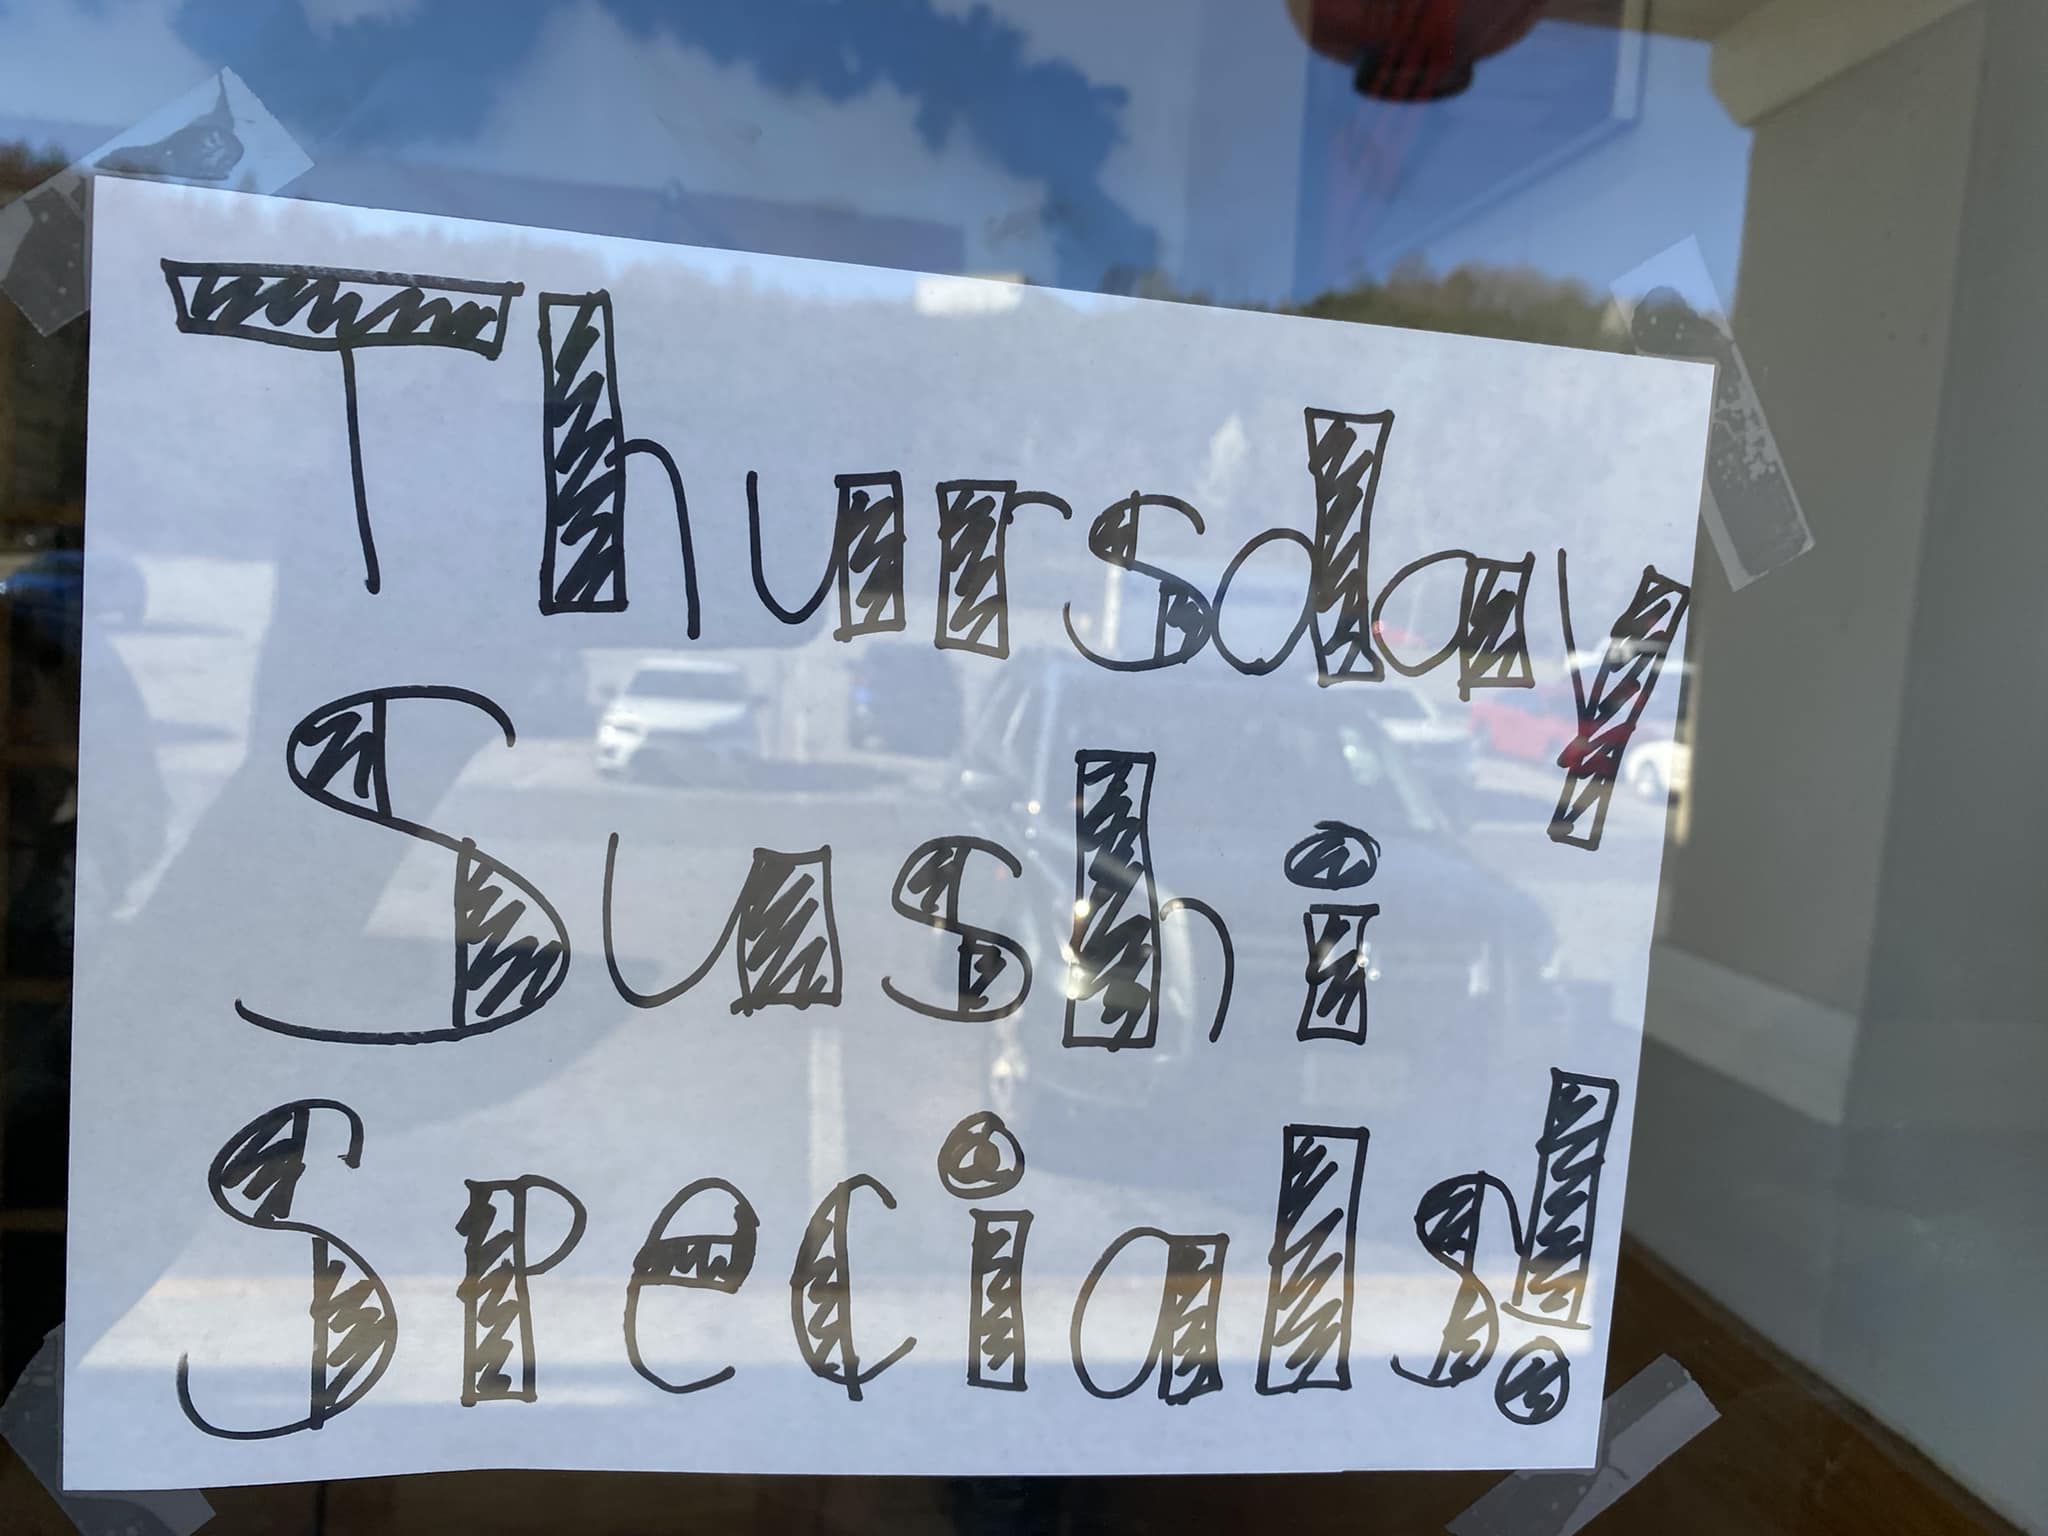 Thursday
Sushi
Specials!